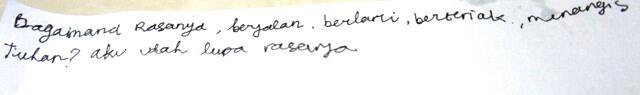 Bagaimana Rasanya, berjalan, berlari, berteriak, menangis
Tuhan? aku udah lupa rasanya